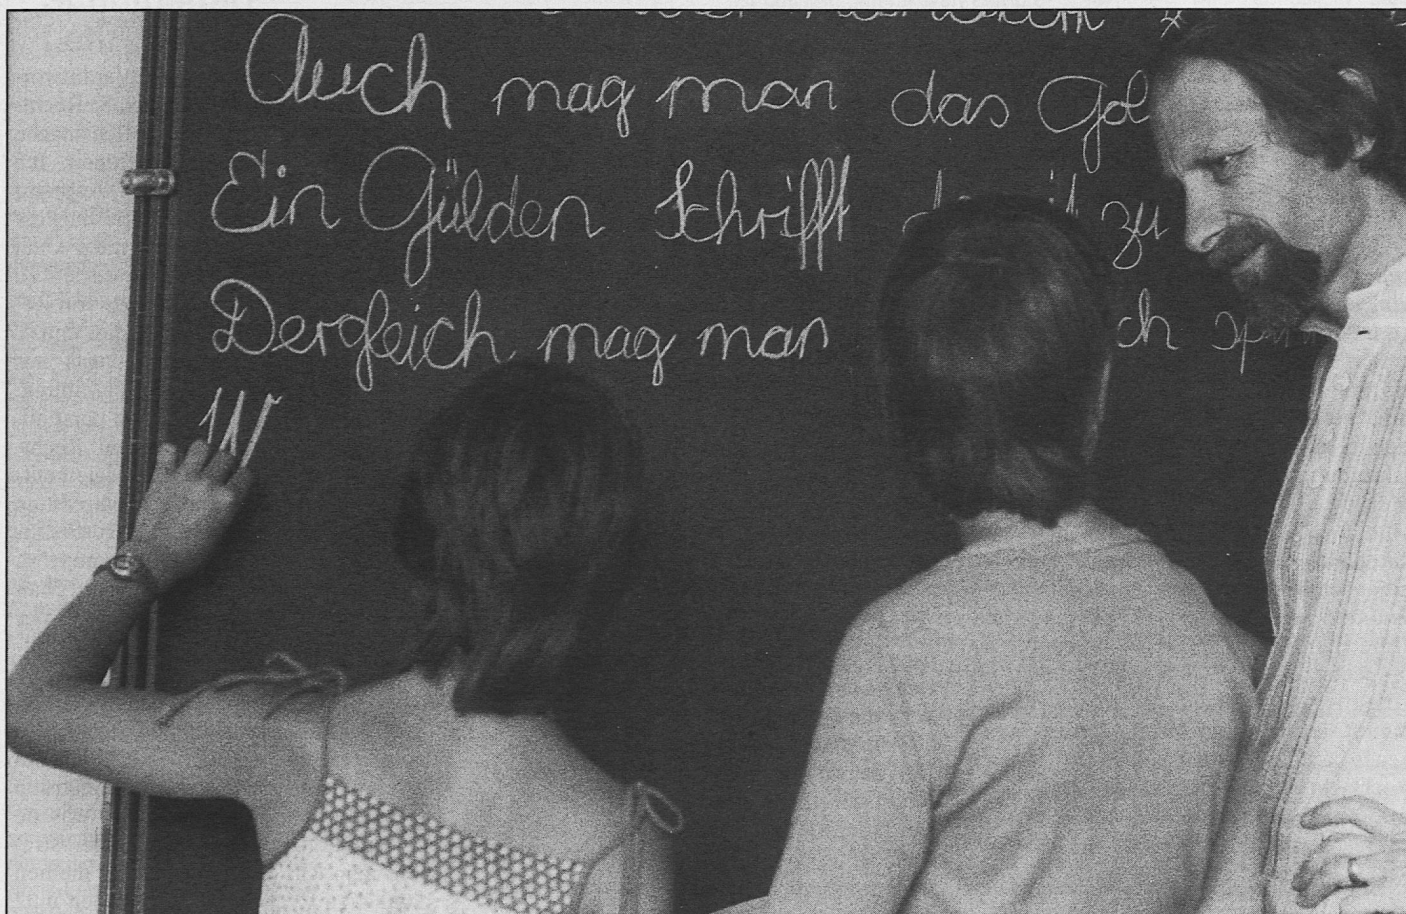 Auch mag man das Gol
Ein Gülden Schrifft zu
Dergleich mag man